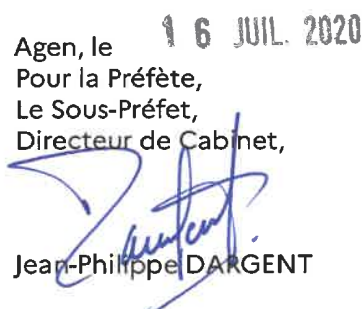 Agen, le 16 JUIL. 2020
Pour la Préfète,
Le Sous-Préfet,
Directeur de Cabinet,
Jean-Philippe DARGENT